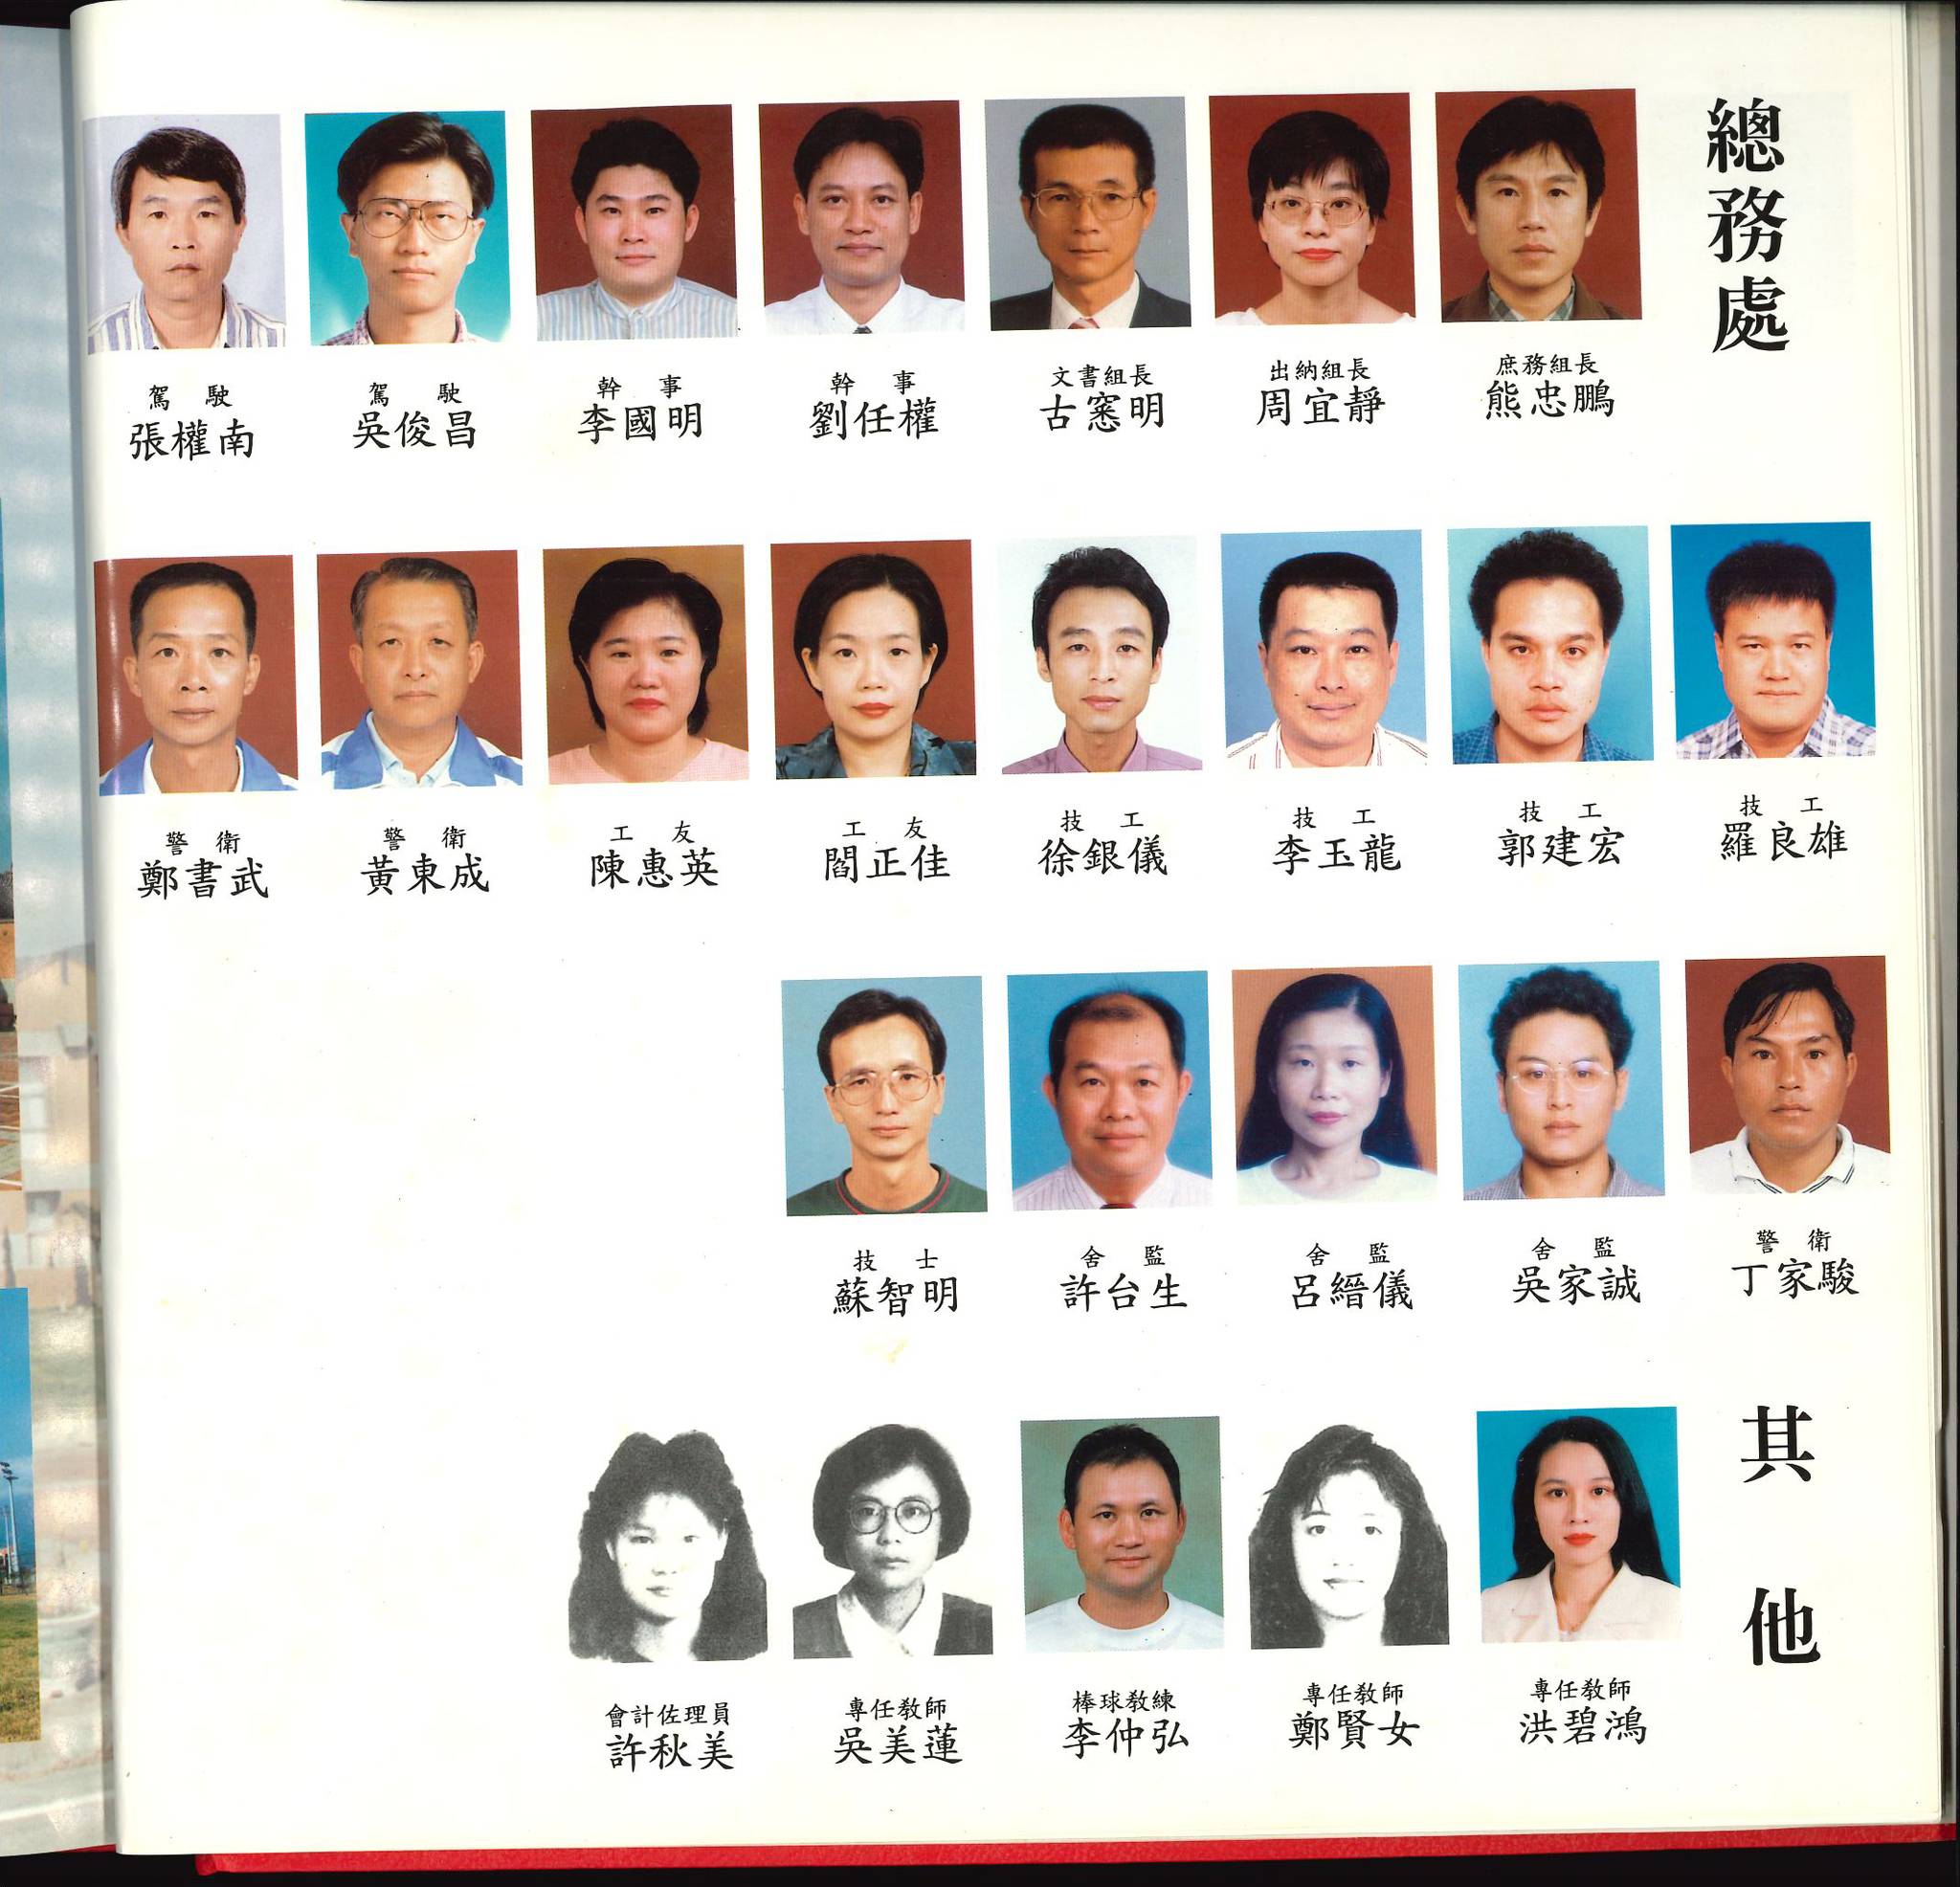 總務處
駕駛 駕駛 幹事 幹事 文書組長 出納組長 庶務組長
張權南 吳俊昌 李國明 劉任權 古窓明 周宜靜 熊忠鵬
警衛 警衛 工友 工友 技工 技工 技工 技工
鄭書武 黃東成 陳惠英 閻正佳 徐銀儀 李玉龍 郭建宏 羅良雄
技士 舍監 舍監 舍監 警衛
蘇智明 許台生 呂縉儀 吳家誠 丁家駿
其他
會計佐理員 專任教師 棒球教練 專任教師 專任教師
許秋美 吳美蓮 李仲弘 鄭賢女 洪碧鴻